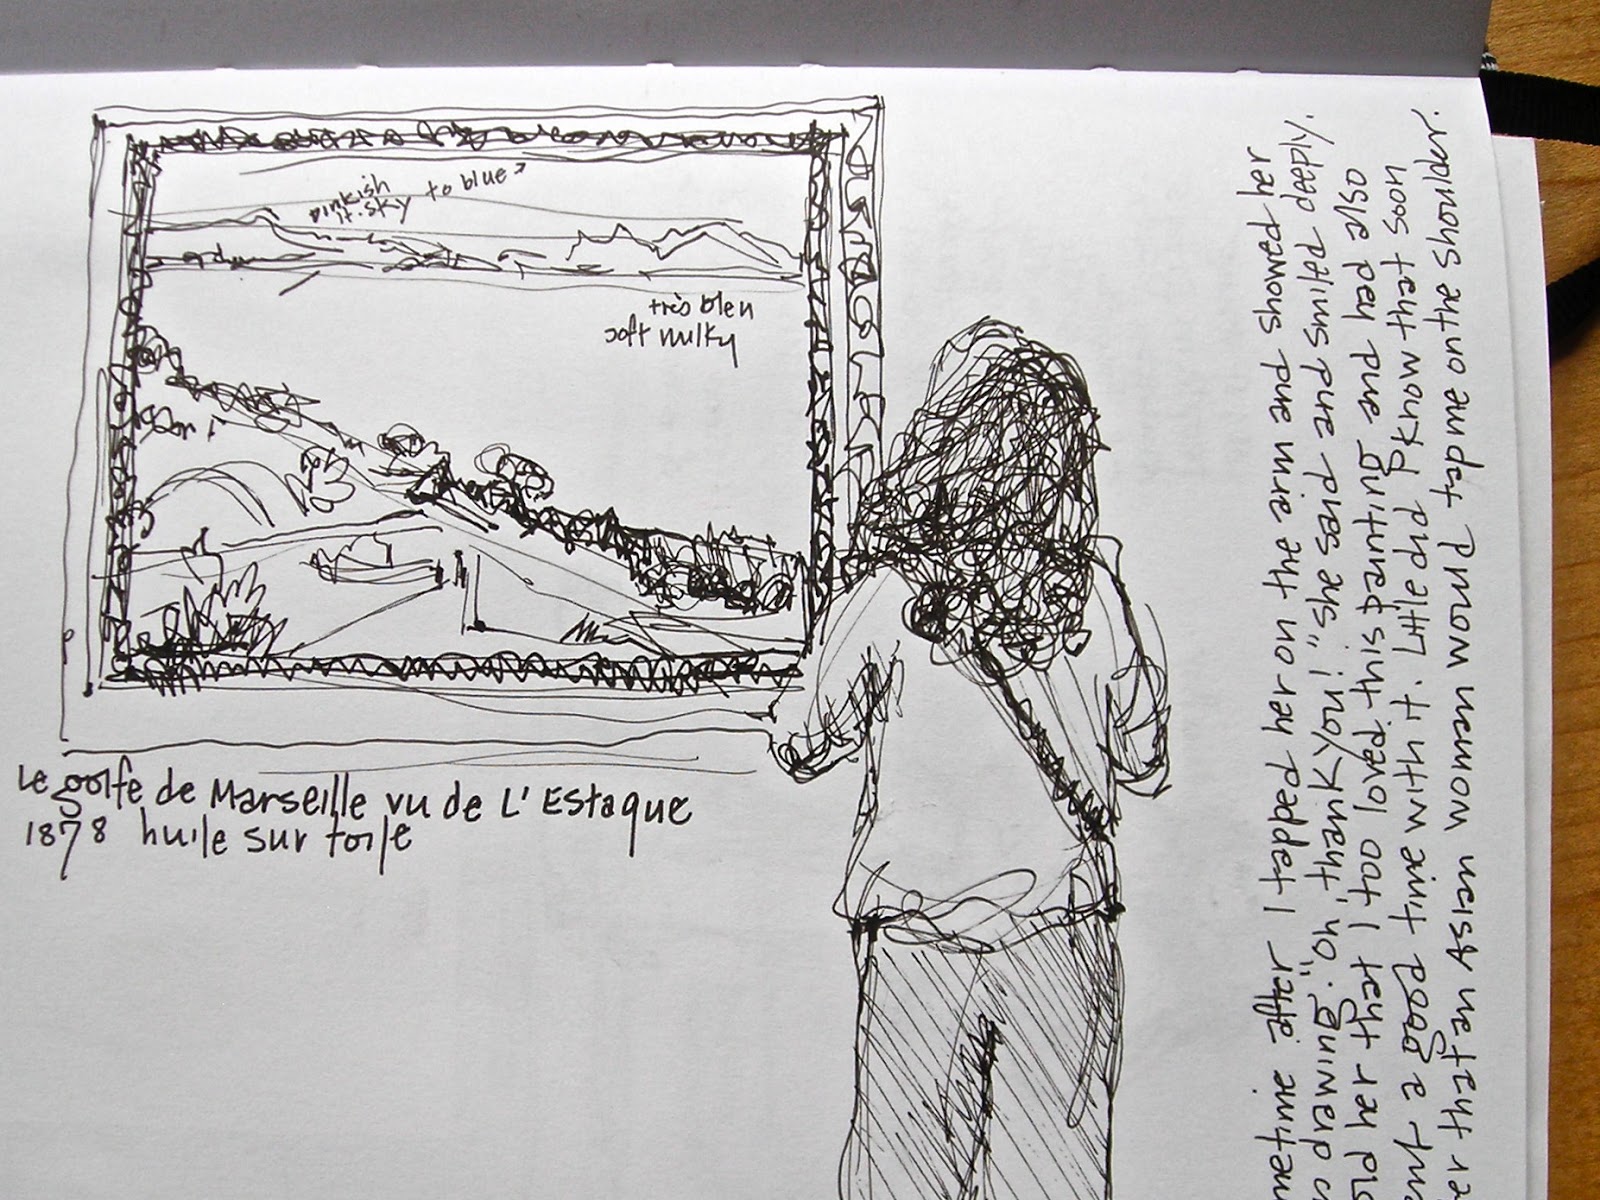 pinkish
lt. sky to blue
très bleu
soft milky
Le golfe de Marseille vu de L'Estaque
1878 huile sur toile
metime after I tapped her on the arm and showed her
drawing. "o, 'thank you!" she said and smiled deeply.
old her that I too loved this painting and had also
ent a good time with it. Little did I know that soon
er that an Asian woman would tap me on the shoulder.